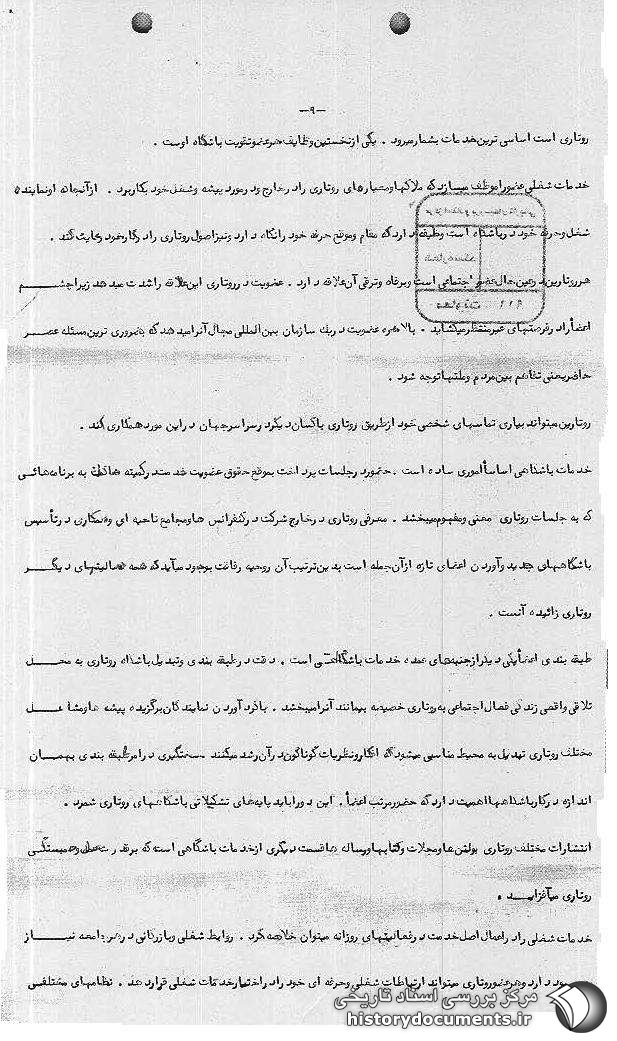 -۹-
روتاری است اساسی ترین خدمات بشمار میرود . یکی از نخستین وظایف هر عضو تقویت باشگاه اوست .
خدمات شغلی عضو را موظف میسازد که ملاکها و معیارهای روتاری را در خارج و در مورد پیشه و شغل خود بکار برد . از آنجا که او نماینده
شغل و حرفه خود در باشگاه است وظیفه دارد که مقام و موقع حرفه خود را نگاه دارد و نیز اصول روتاری را در کار خود رعایت کند .
هر روتارین در عین حال عضو اجتماعی است و برفاه و ترقی آن علاقه دارد . عضویت در روتاری این علاقه را شدت میدهد زیرا چشم
اعضا را در فرصتهای غیر منتظر میگشاید . بالاخره عضویت در یک سازمان بین المللی مجال آنرا میدهد که بضروری ترین مسئله عصر
حاضر یعنی تفاهم بین مردم و ملتها توجه شود .
روتارین میتواند بیاری تماسهای شخصی خود از طریق روتاری با کسان دیگر در سراسر جهان در این مورد همکاری کند .
خدمات باشگاهی اساساً اموری ساده است . حضور در جلسات پرداخت بموقع حقوق عضویت خدمت در کمیته ها کمک به برنامه هائی
که به جلسات روتاری معنی و مفهوم میبخشد . معرفی روتاری در خارج شرکت در کنفرانس ها و مجامع ناحیه ای و همکاری در تأسیس
باشگاههای جدید و آوردن اعضای تازه از آن جمله است بدین ترتیب آن روحیه رفاقت بوجود میآید که همه فعالیتهای دیگر
روتاری زائیده آنست .
طبقه بندی اعضا یکی دیگر از جنبه های عمده خدمات باشگاهی است . دقت در طبقه بندی و تبدیل باشگاه روتاری به محل
تلاقی واقعی زندگی فعال اجتماعی به روتاری خصیصه بیمانند آنرا میبخشد . با گرد آوردن نمایندگان برگزیده پیشه ها و مشاغل
مختلف روتاری تبدیل به محیط مناسبی میشود که افکار و نظریات گوناگون در آن رشد میکنند . سختگیری در امر طبقه بندی بهمان
اندازه در کار باشگاهها اهمیت دارد که حضور مرتب اعضا . این دو را باید پایه های تشکیلاتی باشگاههای روتاری شمرد .
انتشارات مختلف روتاری بولتن ها و مجلات و کتابها و رساله ها قسمت دیگری از خدمات باشگاهی است که بر قدرت عمل و همبستگی
روتاری میافزاید .
خدمات شغلی را در اعمال اصل خدمت در فعالیتهای روزانه میتوان خلاصه کرد . روابط شغلی و بازرگانی در هر جامعه نیاز
وجود دارد و هر عضو روتاری میتواند ارتباطات شغلی و حرفه ای خود را در اختیار خدمات شغلی قرار دهد . نظامهای مختلفی
مرکز بررسی اسناد تاریخی
historydocuments.ir